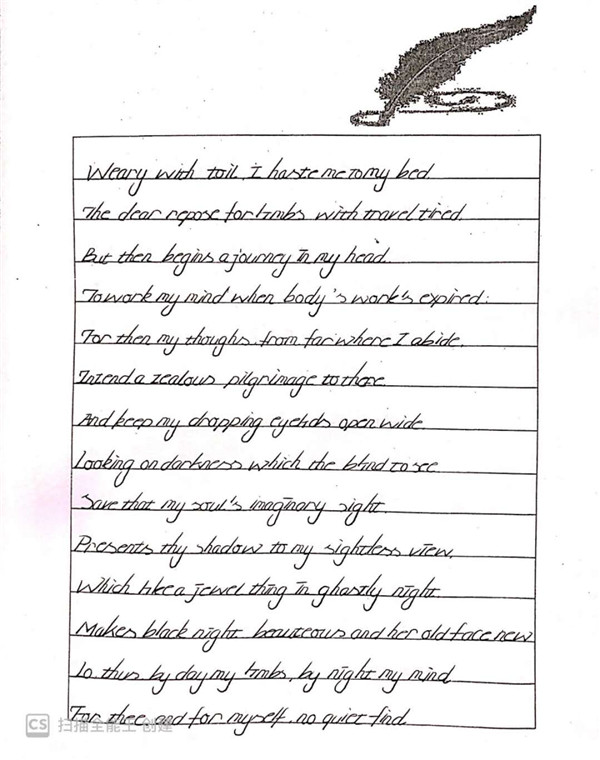 Weary with toil, I haste me to my bed
The dear repose for limbs with travel tired
But then begins a journey in my head
To work my mind when body's work's expired:
For then my thoughs, from far where I abide,
Intend a zealous pilgrimage to thee
And keep my dropping eyelids open wide
Looking on darkness which the blind to see
Save that my soul's imaginary sight
Presents thy shadow to my sightless view,
Which like a jewel thing in ghastly night
Makes black night beauteous and her old face new
Lo thus by day my limbs, by night my mind
For thee, and for myself, no quiet find.
CS 扫描全能王 创建